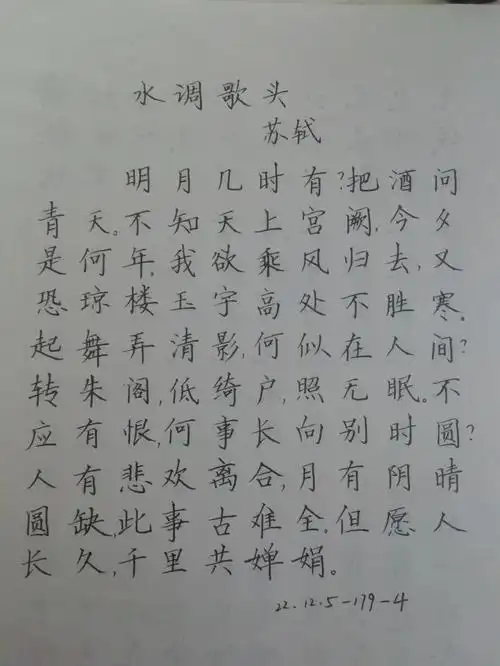 水调歌头
苏轼
明月几时有?把酒问
青天。不知天上宫阙,今夕
是何年,我欲乘风归去,又
恐琼楼玉宇高处不胜寒。
起舞弄清影,何似在人间?
转朱阁,低绮户,照无眠。不
应有恨,何事长向别时圆?
人有悲欢离合,月有阴晴
圆缺,此事古难全.但愿人
长久,千里共婵娟。
22.12.5-179-4